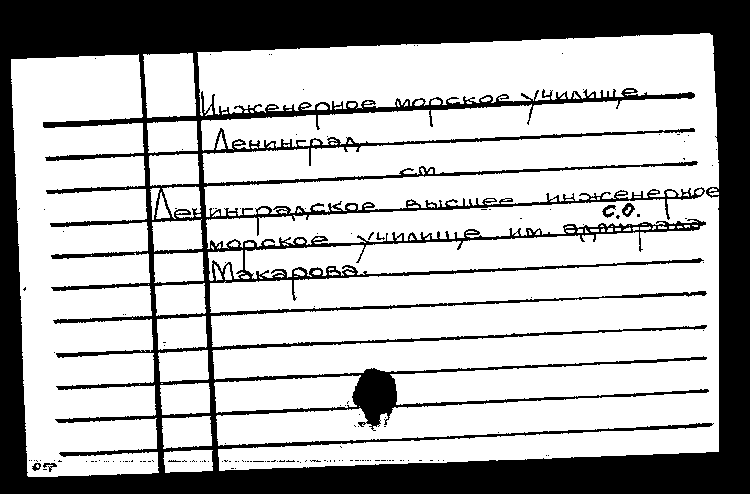 Инженерное морское училище.
Ленинград.
см.
Ленинградское высшее инженерное
С.О.
морское училище им. адмирала
Макарова.